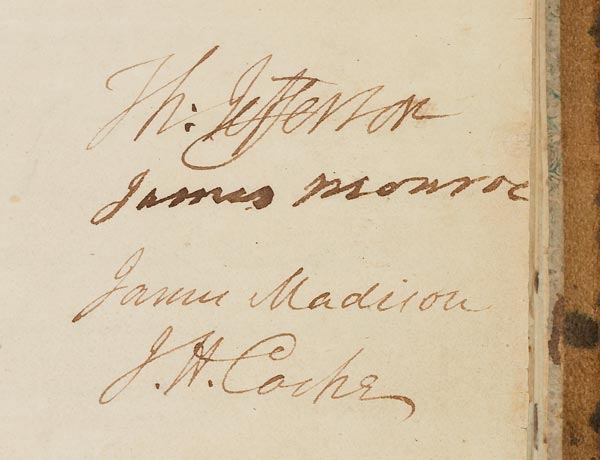 Th: Jefferson
James Monroe
James Madison
J. H. Cocke